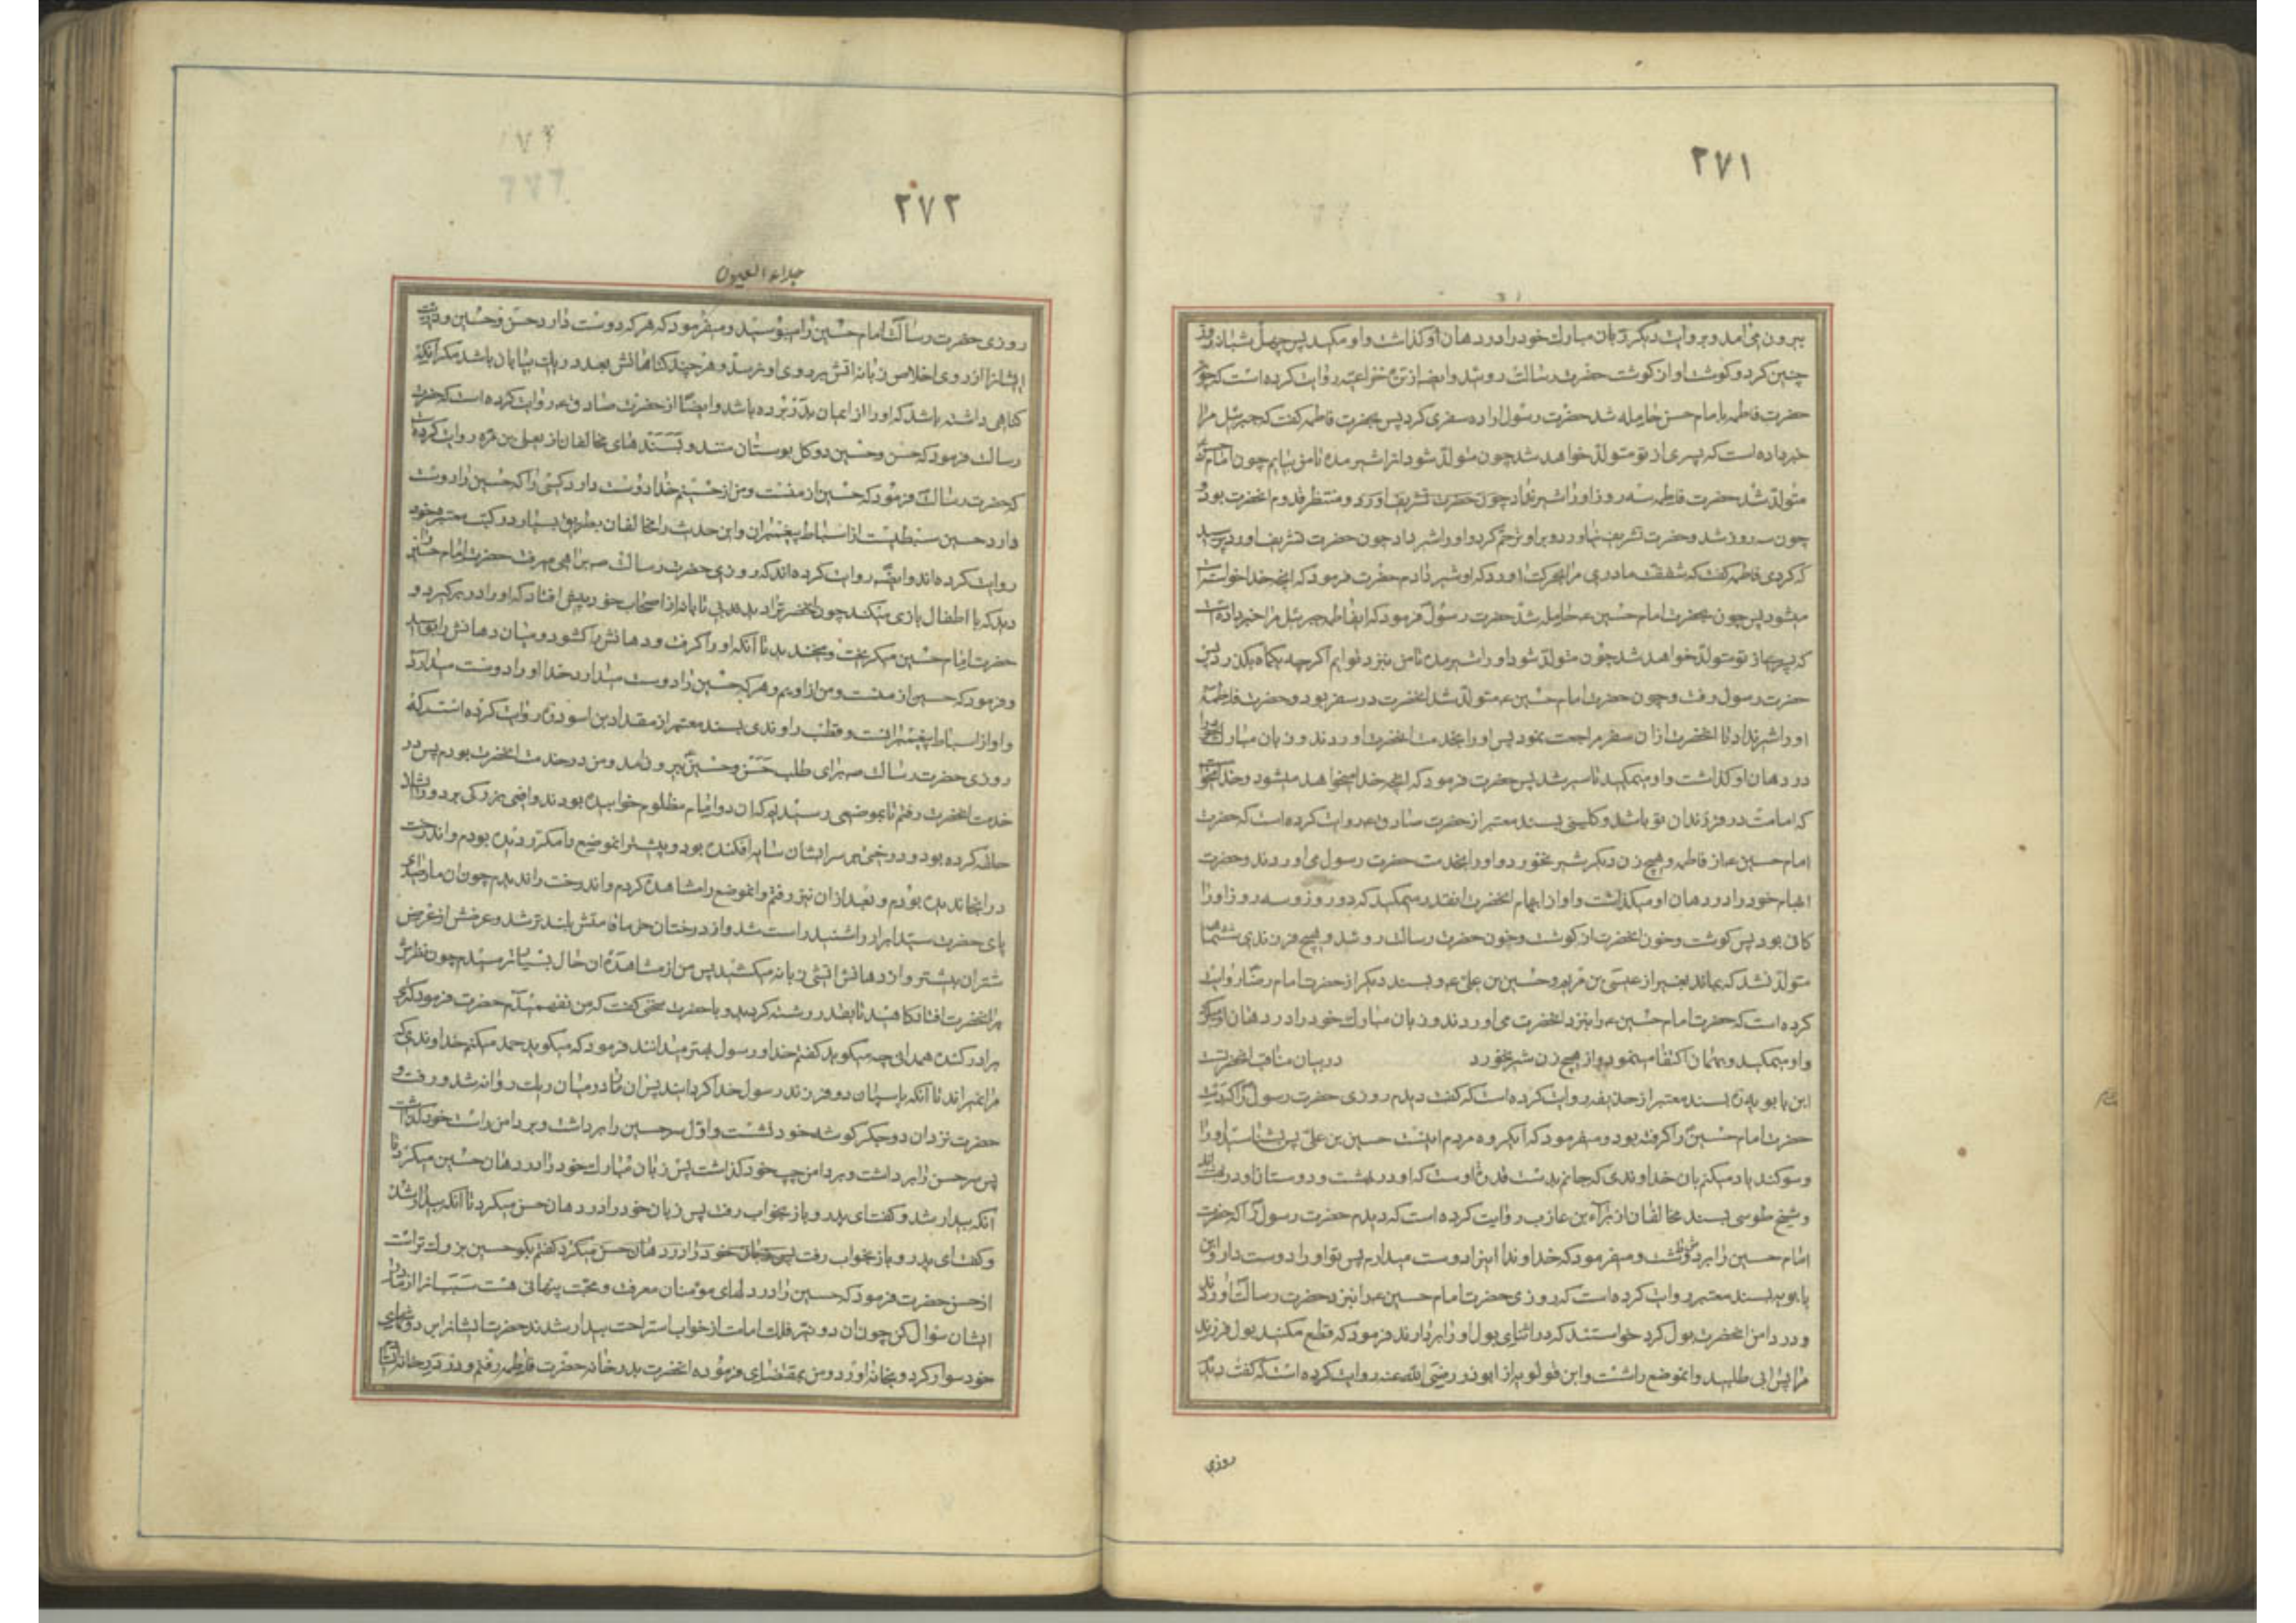 ۲۷۱
بیرون می آمد و بروایت دیگر زبان مبارک خود را در دهان او گذاشت و او مکید پس چهل شبانه روز
چنین کرد و گوشت او از گوشت حضرت رسالت روئید و ایضا از خزاعیه روایت کرده است که چون
حضرت فاطمه بامام حسن حامله شد حضرت رسول اراده سفری کرد پس بحضرت فاطمه گفت که جبرئیل مرا
خبر داده است که پسری از تو متولد خواهد شد چون متولد شود او را شیر مده تا من بیایم چون امام حسن
متولد شد حضرت فاطمه سه روز او را شیر نداد چون حضرت تشریف آورد و منتظر قدوم آنحضرت بود
چون سه روز شد و حضرت تشریف نیاورد و بر او ترحم کرد و او را شیر داد چون حضرت تشریف آورد پرسید
که کردی فاطمه گفت که شفقت مادری مرا بحرکت آورد که او شیر دادم حضرت فرمود که آنچه خدا خواسته است
میشود پس چون بحضرت امام حسین ع حامله شد حضرت رسول فرمود که ایفاطمه جبرئیل مرا خبر داده است
که پسری از تو متولد خواهد شد چون متولد شود او را شیر مده تا من نیزد تو ایم اگرچه یکماه بگذرد پس
حضرت رسول رفت و چون حضرت امام حسین ع متولد شد آنحضرت در سفر بود و حضرت فاطمه
او را شیر نداد تا آنحضرت از آن سفر مراجعت نمود پس او را بخدمت آنحضرت آوردند و زبان مبارک خود را
در دهان او گذاشت و او میمکید تا سیر شد پس حضرت فرمود که آنچه خدا میخواهد میشود و خدا میخواست
که امامت در فرزندان تو باشد و کلینی بسند معتبر از حضرت صادق ع روایت کرده است که حضرت
امام حسین ع از فاطمه و هیچ زن دیگر شیر نخورد و او را بخدمت حضرت رسول می آوردند و حضرت
ابهام خود را در دهان او میگذاشت و او از ابهام آنحضرت آنقدر میمکید که دو روز و سه روز او را
کافی بود پس گوشت و خون آنحضرت از گوشت و خون حضرت رسالت روئید و هیچ فرزندی ششماهه
متولد نشد که بماند بغیر از عیسی بن مریم و حسین بن علی ع و بسند دیگر از حضرت امام رضا روایت
کرده است که حضرت امام حسین ع را بنزد آنحضرت می آوردند و زبان مبارک خود را در دهان او میگذاشت
و او میمکید و بهمان اکتفا مینمود و از هیچ زن شیر نخورد در بیان مناقب آنحضرت
ابن بابویه بسند معتبر از حذیفه روایت کرده است که گفت دیدم روزی حضرت رسول را که دست
حضرت امام حسین را گرفته بود و میفرمود که ایگروه مردم اینست حسین بن علی پس بشناسید او را
و سوگند یاد میکنم بان خداوندی که جانم بدست قدرت اوست که او در بهشت و دوستان او در بهشتند
و شیخ طوسی بسند مخالفان از براء بن عازب روایت کرده است که دیدم حضرت رسول را که حضرت
امام حسین را بر دوش داشت و میفرمود که خداوندا من اینرا دوست میدارم پس تو او را دوست دار و ابن
بابویه بسند معتبر روایت کرده است که روزی حضرت امام حسین ع را بنزد حضرت رسالت آوردند
و در دامن آنحضرت بول کرد خواستند که در اثنای بول او را بردارند فرمود که قطع مکنید بول فرزند
مرا پس آبی طلبید و آنموضع را شست و ابن قولویه از ابوذر رضی الله عنه روایت کرده است که گفت دیدم
روزی
۲۷۲
جلاء العیون
روزی حضرت رسالت امام حسین را میبوسید و میفرمود که هر که دوست دارد حسن و حسین و ذریت
ایشانرا از روی اخلاص زبانه آتش بر روی او نرسد و هر چند گناهانش بعدد ریگ بیابان باشد مگر آنکه
گناهی داشته باشد که او را از ایمان بدر برده باشد و ایضا از حضرت صادق ع روایت کرده است که حضرت
رسالت فرمود که حسن و حسین دو گل بوستان منند و بسندهای مخالفان از یعلی بن مره روایت کرده
که حضرت رسالت فرمود که حسین از منست و من از حسینم خدا دوست دارد کسی را که حسین را دوست
دارد حسین سبطیست از اسباط پیغمبران و این حدیث را مخالفان بطریق بسیار در کتب معتبره خود
روایت کرده اند و ایضا روایت کرده اند که روزی حضرت رسالت ص براهی میرفت حضرت امام حسین را
دید که با اطفال بازی میکند چون آنحضرت را دید بی تابانه از اصحاب خود پیش افتاد که او را در برگیرد و
حضرت امام حسین میگریخت و میخندید تا آنکه او را گرفت و دهانش را گشود و میان دهانش را بوسید
و فرمود که حسین از منست و من از اویم و هر که حسین را دوست میدارد خدا او را دوست میدارد
و او از اسباط پیغمبرانست و قطب راوندی بسند معتبر از مقداد بن اسود روایت کرده است که
روزی حضرت رسالت ص برای طلب حسن و حسین بیرون آمد و من در خدمت آنحضرت بودم پس در
خدمت آنحضرت رفتم تا بموضعی رسیدیم که آن دو امام مظلوم خوابیده بودند و افعی بزرگی بر دور ایشان
حلقه کرده بود و درختی بر سر ایشان سایه افکنده بود و پیشتر آنموضع را مکرر دیده بودم و آندرخت
در آنجا ندیده بودم و بعد از آن نیز رفتم و آنموضع را مشاهده کردم و آندرخت را ندیدم چون آن مار صدای
پای حضرت سید ابرار را شنید راست شد و از درختان خرما قامتش بلندتر شد و عرضش از عرض
شتران بیشتر و از دهانش آتش زبانه میکشید پس من از مشاهده آن حال بسیار ترسیدم چون نظرش
بر آنحضرت افتاد کاهید تا بقدر رشته گردید و با حضرت سخنی گفت که من نفهمیدم حضرت فرمود که ای
برادر کنده همدانی چه میگوید گفتم خدا و رسول بهتر میدانند فرمود که میگوید حمد میکنم خداوندی که
مرا نمیراند تا آنکه پاسبان دو فرزند رسول خدا گردانید پس آن مار در میان ریگ روانه شد و رفت و
حضرت نزد آن دو جگر گوشه خود نشست و اول سر حسین را برداشت و بر دامن راست خود گذاشت
پس سر حسن را برداشت و بر دامن چپ خود گذاشت پس زبان مبارک خود را در دهان حسین میکرد تا
آنکه بیدار شد و گفت ای پدر و باز بخواب رفت پس زبان خود را در دهان حسن میکرد تا آنکه بیدار شد
و گفت ای پدر و باز بخواب رفت پس زبان خود را در دهان حسن میکرد گفتم بگو حسین بزرگ تر است
از حسن حضرت فرمود که حسین را در دلهای مؤمنان معرفت و محبت پنهانی هست سبب آنرا از مادر
ایشان سؤال کن چون آن دو نیر فلک امامت از خواب استراحت بیدار شدند حضرت ایشانرا بر دوشهای
خود سوار کرد و بخانه آورد و من بمقتضای فرموده آنحضرت بدر خانه حضرت فاطمه رفتم و در در خانه